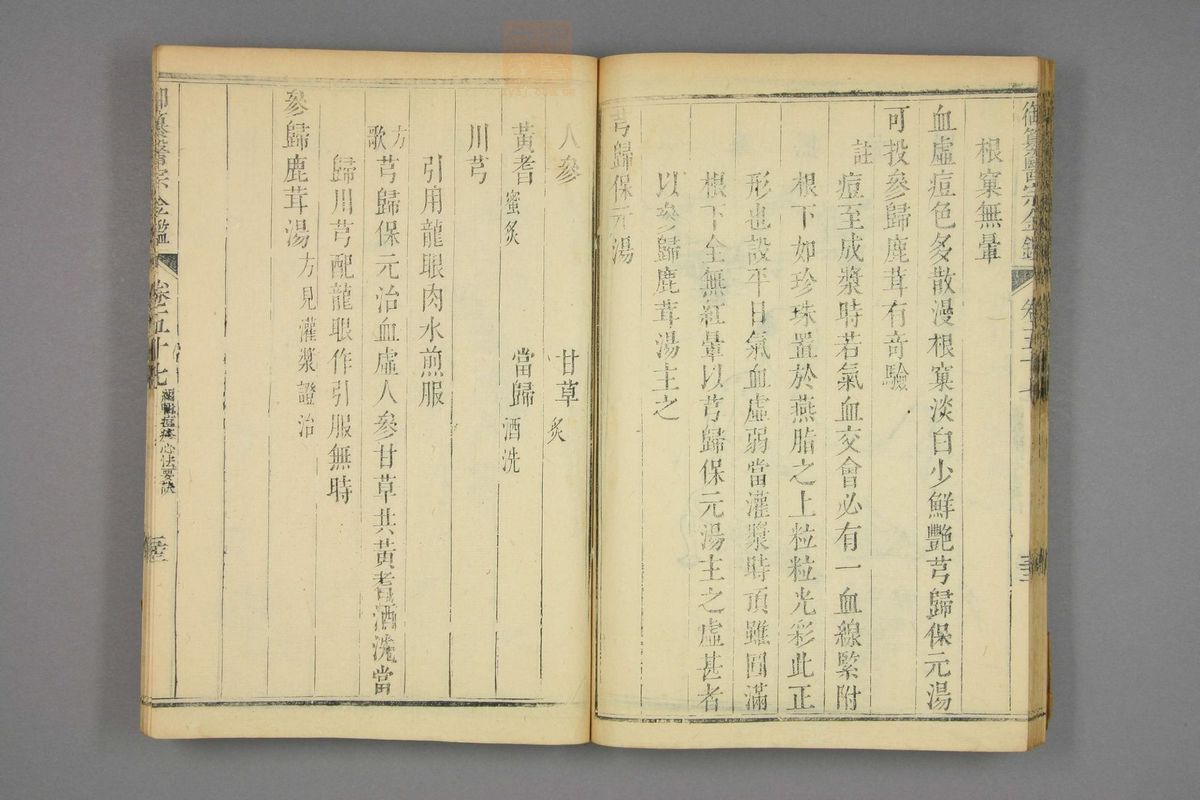 御纂醫宗金鑑
卷五十七
根窠無暈
血虛痘色多散漫根窠淡白少鮮艷芎歸保元湯
可投參歸鹿茸有奇驗
註
痘至成漿時若氣血交會必有一血線緊附
根下如珍珠置於燕脂之上粒粒光彩此正
形也設平日氣血虛弱當灌漿時頂雖圓滿
根下全無紅暈以芎歸保元湯主之虛甚者
以參歸鹿茸湯主之
芎歸保元湯
人參 甘草炙
黃耆蜜炙 當歸酒洗
川芎
引用龍眼肉水煎服
方歌 芎歸保元治血虛人參甘草共黃耆酒洗當
歸川芎配龍眼作引服無時
參歸鹿茸湯方見灌漿證治
御纂醫宗金鑑
卷五十七
編輯痘疹心法要訣